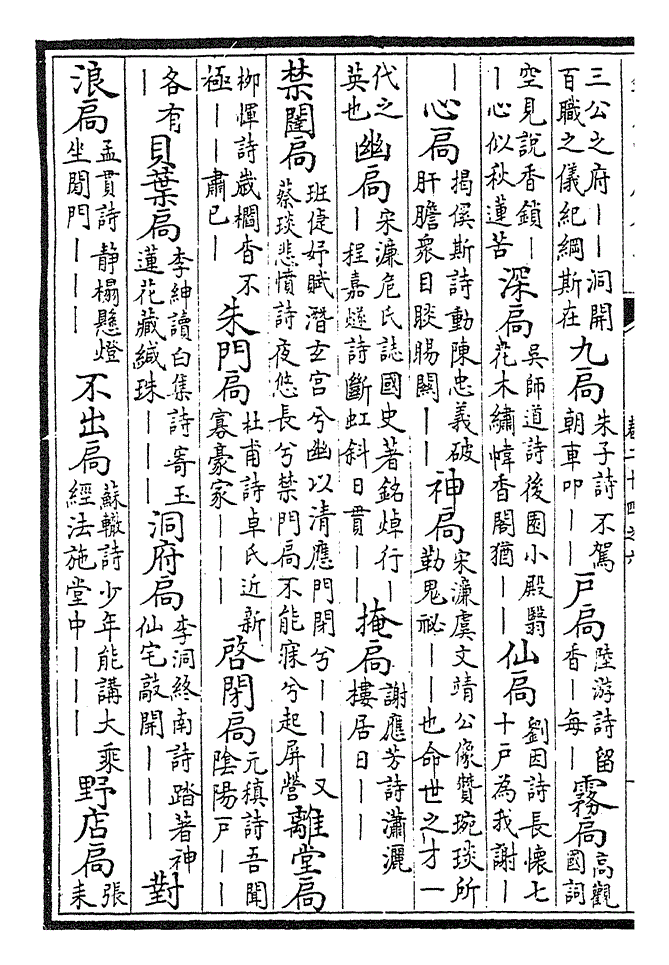 三公之府——洞開百職之儀紀綱斯在九扃朱子詩不駕朝車叩——戶扃陸游詩留香—每—霧扃高觀國詞
空見說香鎖——心似秋蓮苦深扃吳師道詩後園小殿翳花木繡幃香閣猶——仙扃劉因詩長懷七十戶為我謝—
—心扃揭傒斯詩動陳忠義破肝膽衆目睒睗闢——神扃宋濂虞文靖公像贊琬琰所勒鬼祕——也命世之才一
代之英也幽扃宋濂危氏誌國史著銘焯行——程嘉燧詩斷虹斜日貫——掩扃謝應芳詩瀟灑樓居日——
禁闥扃班倢妤賦潛玄宮兮幽以清應門閉兮———又蔡琰悲憤詩夜悠長兮禁門扃不能寐兮起屏營離堂扃
柳惲詩歲櫚杳不極——肅已—朱門扃杜甫詩卓氏近新寡豪家———啓閉扃元稹詩吾聞陰陽戶——
各有—貝葉扃李紳讀白集詩寄玉蓮花藏緘珠———洞府扃李洞終南詩踏著神仙宅敲開———對
浪扃孟貫詩靜榻懸燈坐閒門———不出扃蘇轍詩少年能講大乘經法施堂中———野店扃張耒
卷二十四之六